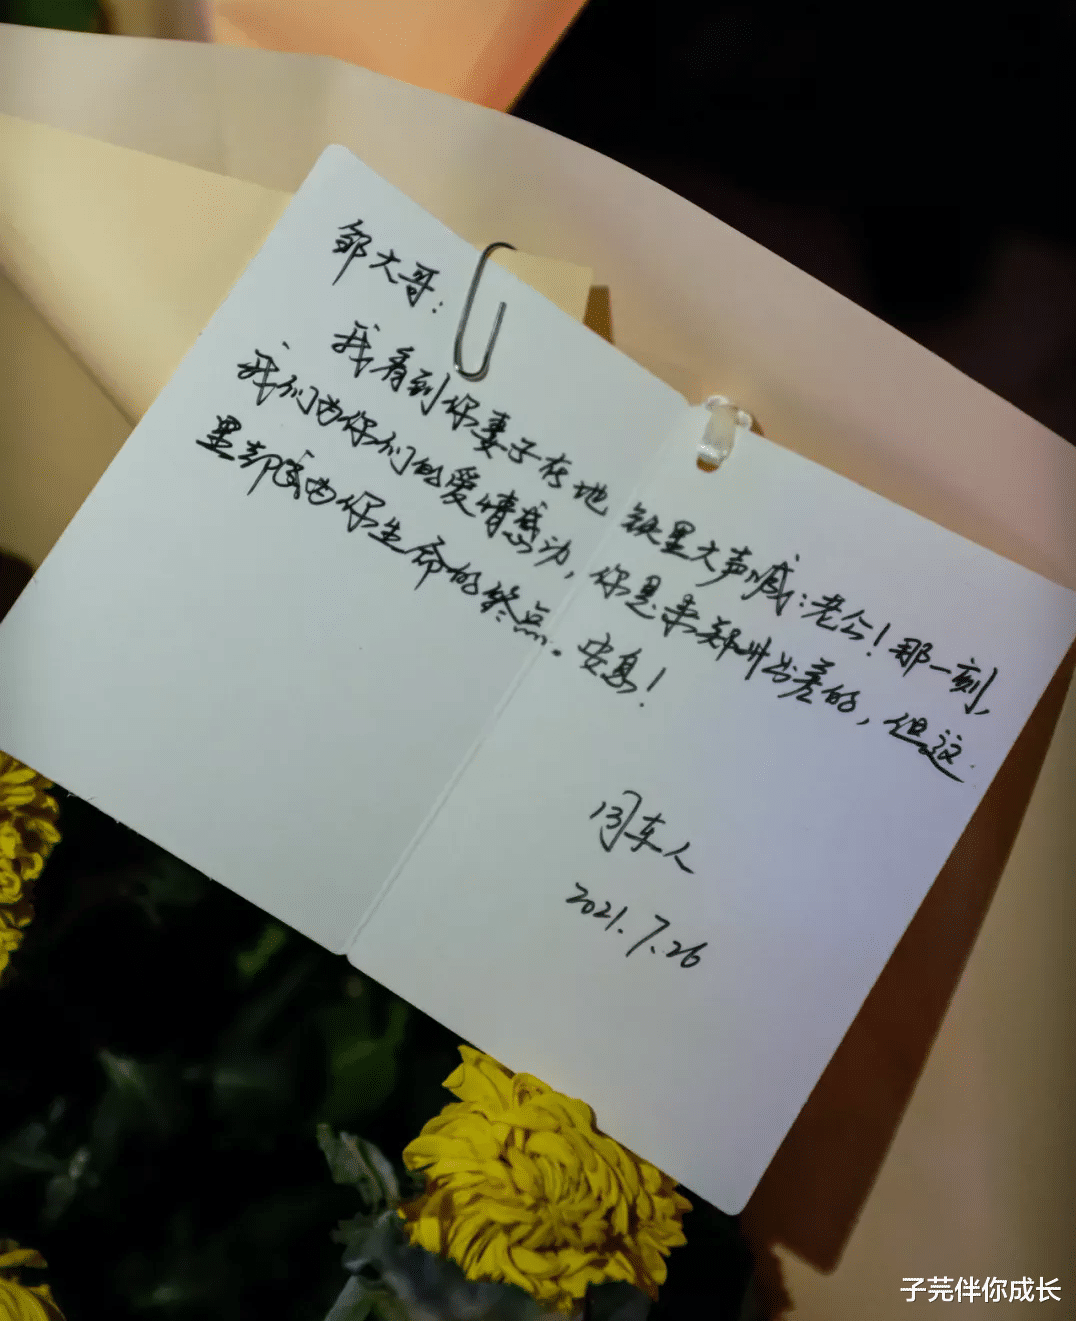 邹大哥：
我看到你妻子在地铁里大声喊：老公！那一刻，
我们为你们的爱情感动，你是来郑州出差的，但这
里却成为你生命的终点。安息！
同车人
2021.7.26
子芫伴你成长